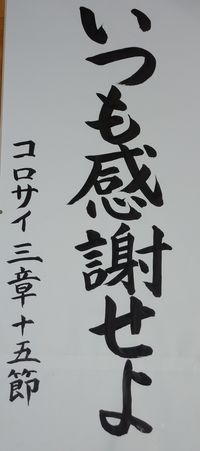 いつも感謝せよ
コロサイ三章十五節